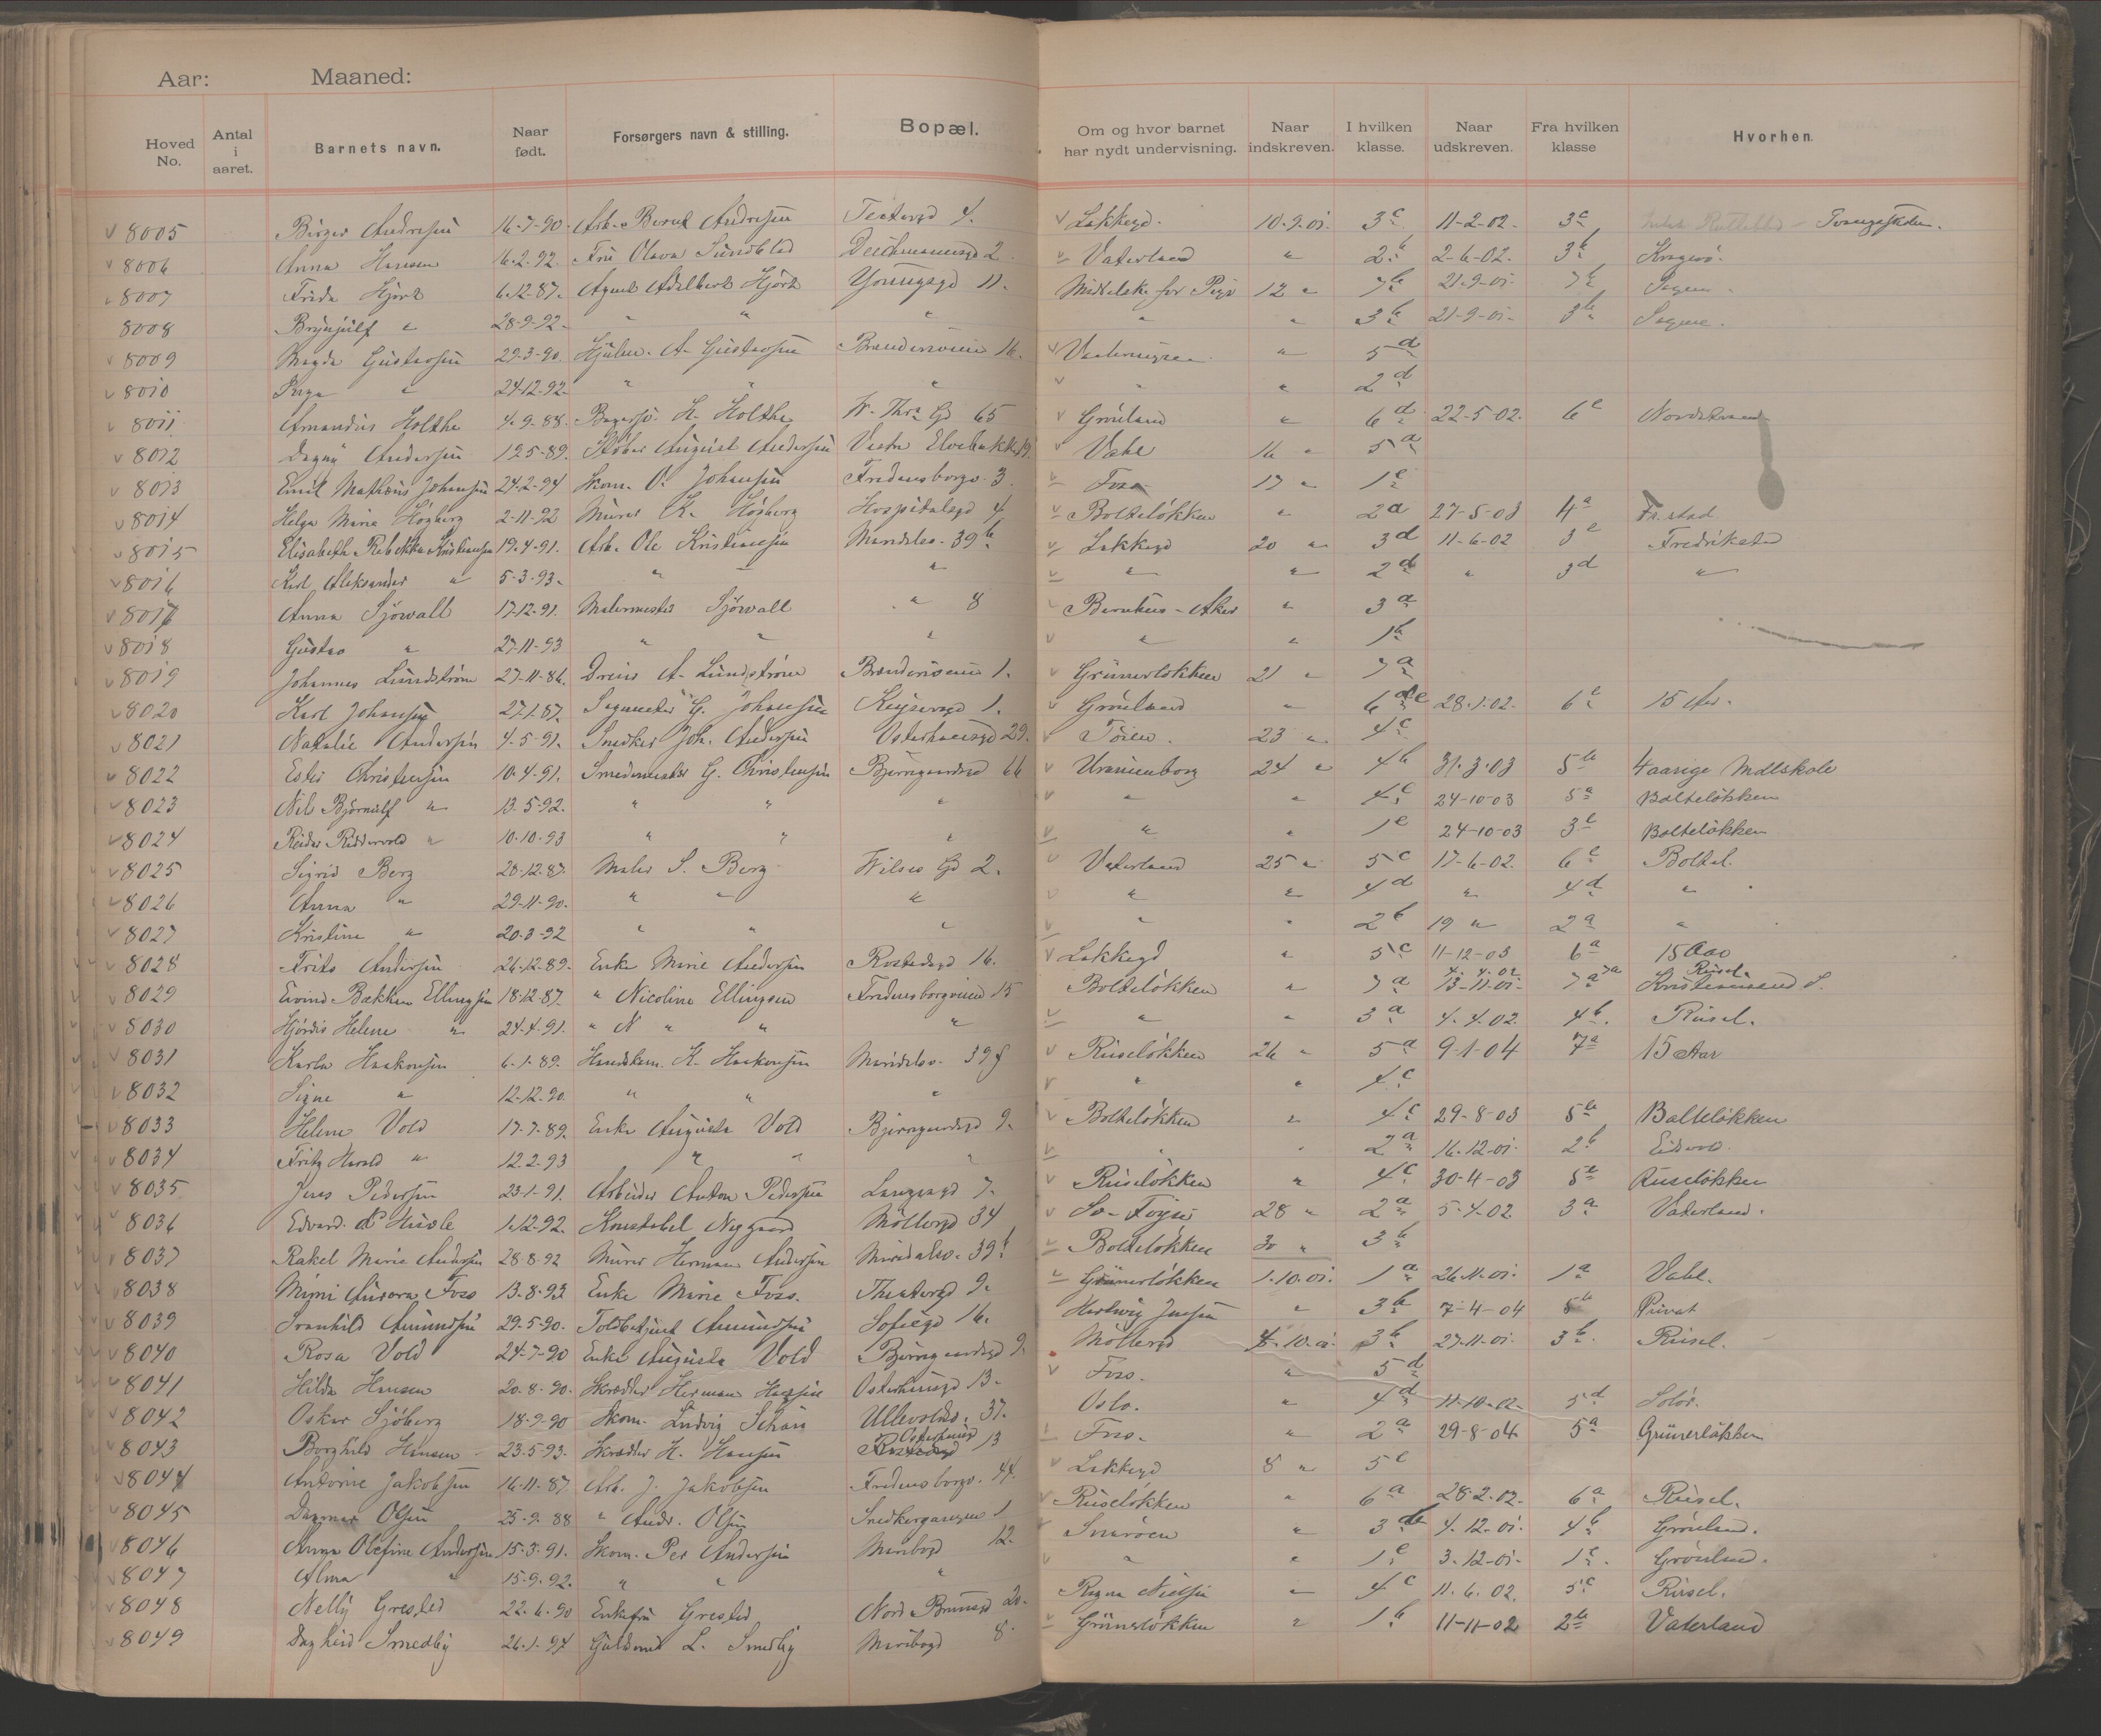 Aar: Maaned:
Hoved No. Antal i aaret. Barnets navn. Naar født. Forsørgers navn & stilling. Bopæl. Om og hvor barnet har nydt undervisning. Naar indskreven. I hvilken klasse. Naar udskreven. Fra hvilken klasse Hvorhen.
8005 Birger Andresen 16-7-90 Arb. Bernt Andresen Teatergd 4. Lakkegd. 10-9-01. 3c 11-2-02. 3c Tvangsskolen.
8006 Anna Hansen 16-2-92. Fru Olava Sundblad Deichmannsgd 2 Vaterland " 2b 2-6-02. 3b Kragerö.
8007 Frida Hjort 6-12-87. Agent Adelbert Hjort Youngsgd 11. Middelsk. for Pige 12 " 7b 21-9-01. 7b Sagene.
8008 Brynjulf " 28-9-92. " " " " " 3b 21-9-01. 3b Sagene.
8009 Magda Gustavsen 29-3-90. Hjulm. A. Gustavsen Brenderiveien 16. " 5d
8010 " 24-12-92. " " " " " 2d
8011 Amandus Holthe 4-9-88. H. Holthe W. Thr. Gd 65 Grönland " 6d 22-5-02. 6c Nordstrand
8012 Dagny Andersen 12-5-89. Støber August Andersen Vestre Elvebakke 19. Vahl 16 " 5a
8013 Emil Mathæus Johansen 24-2-94 Skom. O. Johansen Fredensborgv. 3. Foss 17 " 1c
8014 Helga Marie Högberg 2-11-92 Murer K. Högberg Hospitalsgd 4 Bolteløkken " 2a 27-5-03 4a Fr.stad
8015 Elisabeth Rebekka Kristiansen 19-4-91. Arb. Ole Kristiansen Maridalsv. 39b Lakkegd 20 " 3d 11-6-02 3e Fredrikstad
8016 Karl Aleksander " 5-3-93. " " " " " 2d " 3d "
8017 Anna Sjöwall 17-12-91. Malermester Sjöwall " 8 - Aker " 3a
8018 Gustav " 27-11-93 " " " " " 1b
8019 Johannes Lundström 27-11-86. Dreier A. Lundström Brenderiveien 1. Grünerløkken 21 " 7a
8020 Karl Johansen 27-1-87. G. Johansen Keysersgd 1. Grönland " 6e 28-1-02. 6e 15 Aar.
8021 Natalie Andersen 4-5-91. Snedker Joh. Andersen Osterhausgd 29. Töien. 23 " 4c
8022 Ester Christensen 10-4-91. Smedemester G. Christensen Bjerregaardsgd 66 Uranienborg 24 " 4b 31-3-03 5b 4aarige Mdlskole
8023 Nils Björnulf " 13-5-92. " " " " " 4c 24-10-03 5a Bolteløkken
8024 Reidar Riddervold " 10-10-93 " " " " " 1e 24-10-03 3e Bolteløkken
8025 Sigrid Berg 28-12-87. Maler S. Berg Wilses Gd 2. Vaterland 25 " 5c 17-6-02. 6c Boltel.
8026 Anna " 29-11-90. " " " " " 4d " 4d "
8027 Kristine " 20-3-92 " " " " " 2b 19 " 2a "
8028 Frits Andersen 26-12-89. Enke Marie Andersen Rostedsgd 16. Lakkegd " 5c 11-12-03 6a 15 Aar
8029 Eivind Bakken Ellingsen 18-12-87. " Nicoline Ellingsen Fredensborgveien 15 Bolteløkken " 7a 4-4-02 13-11-01. 7a 7a Rusel. Kristiansand S.
8030 Hjördis Helene " 24-4-91. " N " " " " " 3a 4-4-02. 4b. Rusel.
8031 Karla Haakonsen 6-1-89. Handskem. K. Haakonsen Maridalsv. 39f Ruseløkken 26 " 5a 9-1-04 7a 15 Aar
8032 Signe " 12-12-90. " " " " " 4c
8033 Helene Vold 17-7-89. Enke Augusta Vold Bjerregaardsgd 9. Bolteløkken " 4c 29-8-03 5b Bolteløkken
8034 Fritz Harald " 12-2-93 " " " " " 2a 16-12-01. 2b Eidsvold.
8035 Jens Pedersen 23-1-91. Arbeider Anton Pedersen Langesgd 7. Ruseløkken " 4c 30-4-03 5e Ruseløkken
8036 Edvard 1-12-92. Konstabel Nygaard Möllergd 34 28 " 2a 5-4-02. 3a Vaterland.
8037 Rakel Marie Andersen 28-8-92 Murer Herman Andersen Maridalsv. 39b Bolteløkken 30 " 3b
8038 Mimi Aurora Foss 13-8-93 Enke Marie Foss. Theatergd 9. Grünerløkken 1-10-01. 1a 26-11-01. 1a Vahl.
8039 Svanhild Amundsen 29-5-90. Toldbetjent Amundsen Sofiegd 16. Hartvig Jensen " 3b 7-4-04 5b Privat
8040 Rosa Vold 24-7-90 Enke Augusta Vold Bjerregaardsgd 9. Möllergd 4-10-01. 3b 27-11-01. 3b. Rusel.
8041 Hilda Hansen 20-8-90. Skrædder Herman Hansen Osterhausgd 13. Foss. " 5d
8042 Oskar Sjöberg 18-9-90 Skom. Ludvig Ullevoldsv. 37. Oslo. " 4d 11-10-02. 5d Solör.
8043 Borghild Hansen 23-5-93. Skrædder H. Hansen Osterhausgd 13 Foss. " 2a 29-8-04 5a Grünerløkken
8044 Antonie Jakobsen 16-11-87. Arb. J. Jakobsen Fredensborgv. 44. Lakkegd 8 " 5e
8045 Dagmar Olsen 25-9-88 " Andr. Olsen Snedkergangen 1 Ruseløkken " 6a 28-2-02. 6a Rusel.
8046 Anna Olefine Andersen 15-3-91. Skom. Per Andersen Maribogd 12. Snaröen " 3b 4-12-01. 4b Grönland.
8047 Alma " 15-9-92. " " " " " 1e 3-12-01. 1e. Grönland.
8048 Nelly Grested 22-6-90 Enkefru Grested Nord. Brunsgd 20. Ragna Nielsen " 4c 11-6-02. 5c Rusel.
8049 Daghild Smedby 26-1-94 Guldsmed L. Smedby Maribogd 8. Grünerløkken " 1b 11-11-02 2b Vaterland